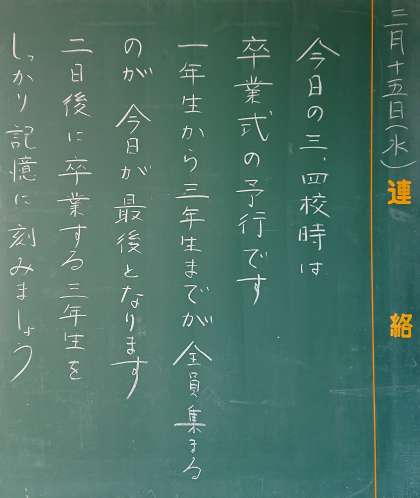 連絡
三月十五日(水)
今日の三、四校時は
卒業式の予行です
一年生から三年生までが全員集まる
のが今日が最後となります
二日後に卒業する三年生を
しっかり記憶に刻みましょう